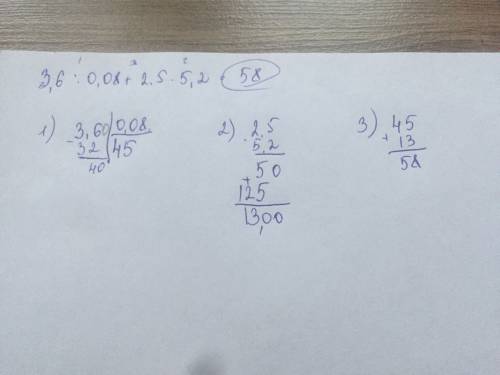 1 3 2
3,6 : 0,08 + 2.5 · 5,2 = 58
1) 3,60 | 0,08
- 32 | 45
40
2) 2.5
· 5,2
50
+ 125
13,00
3) 45
+ 13
58